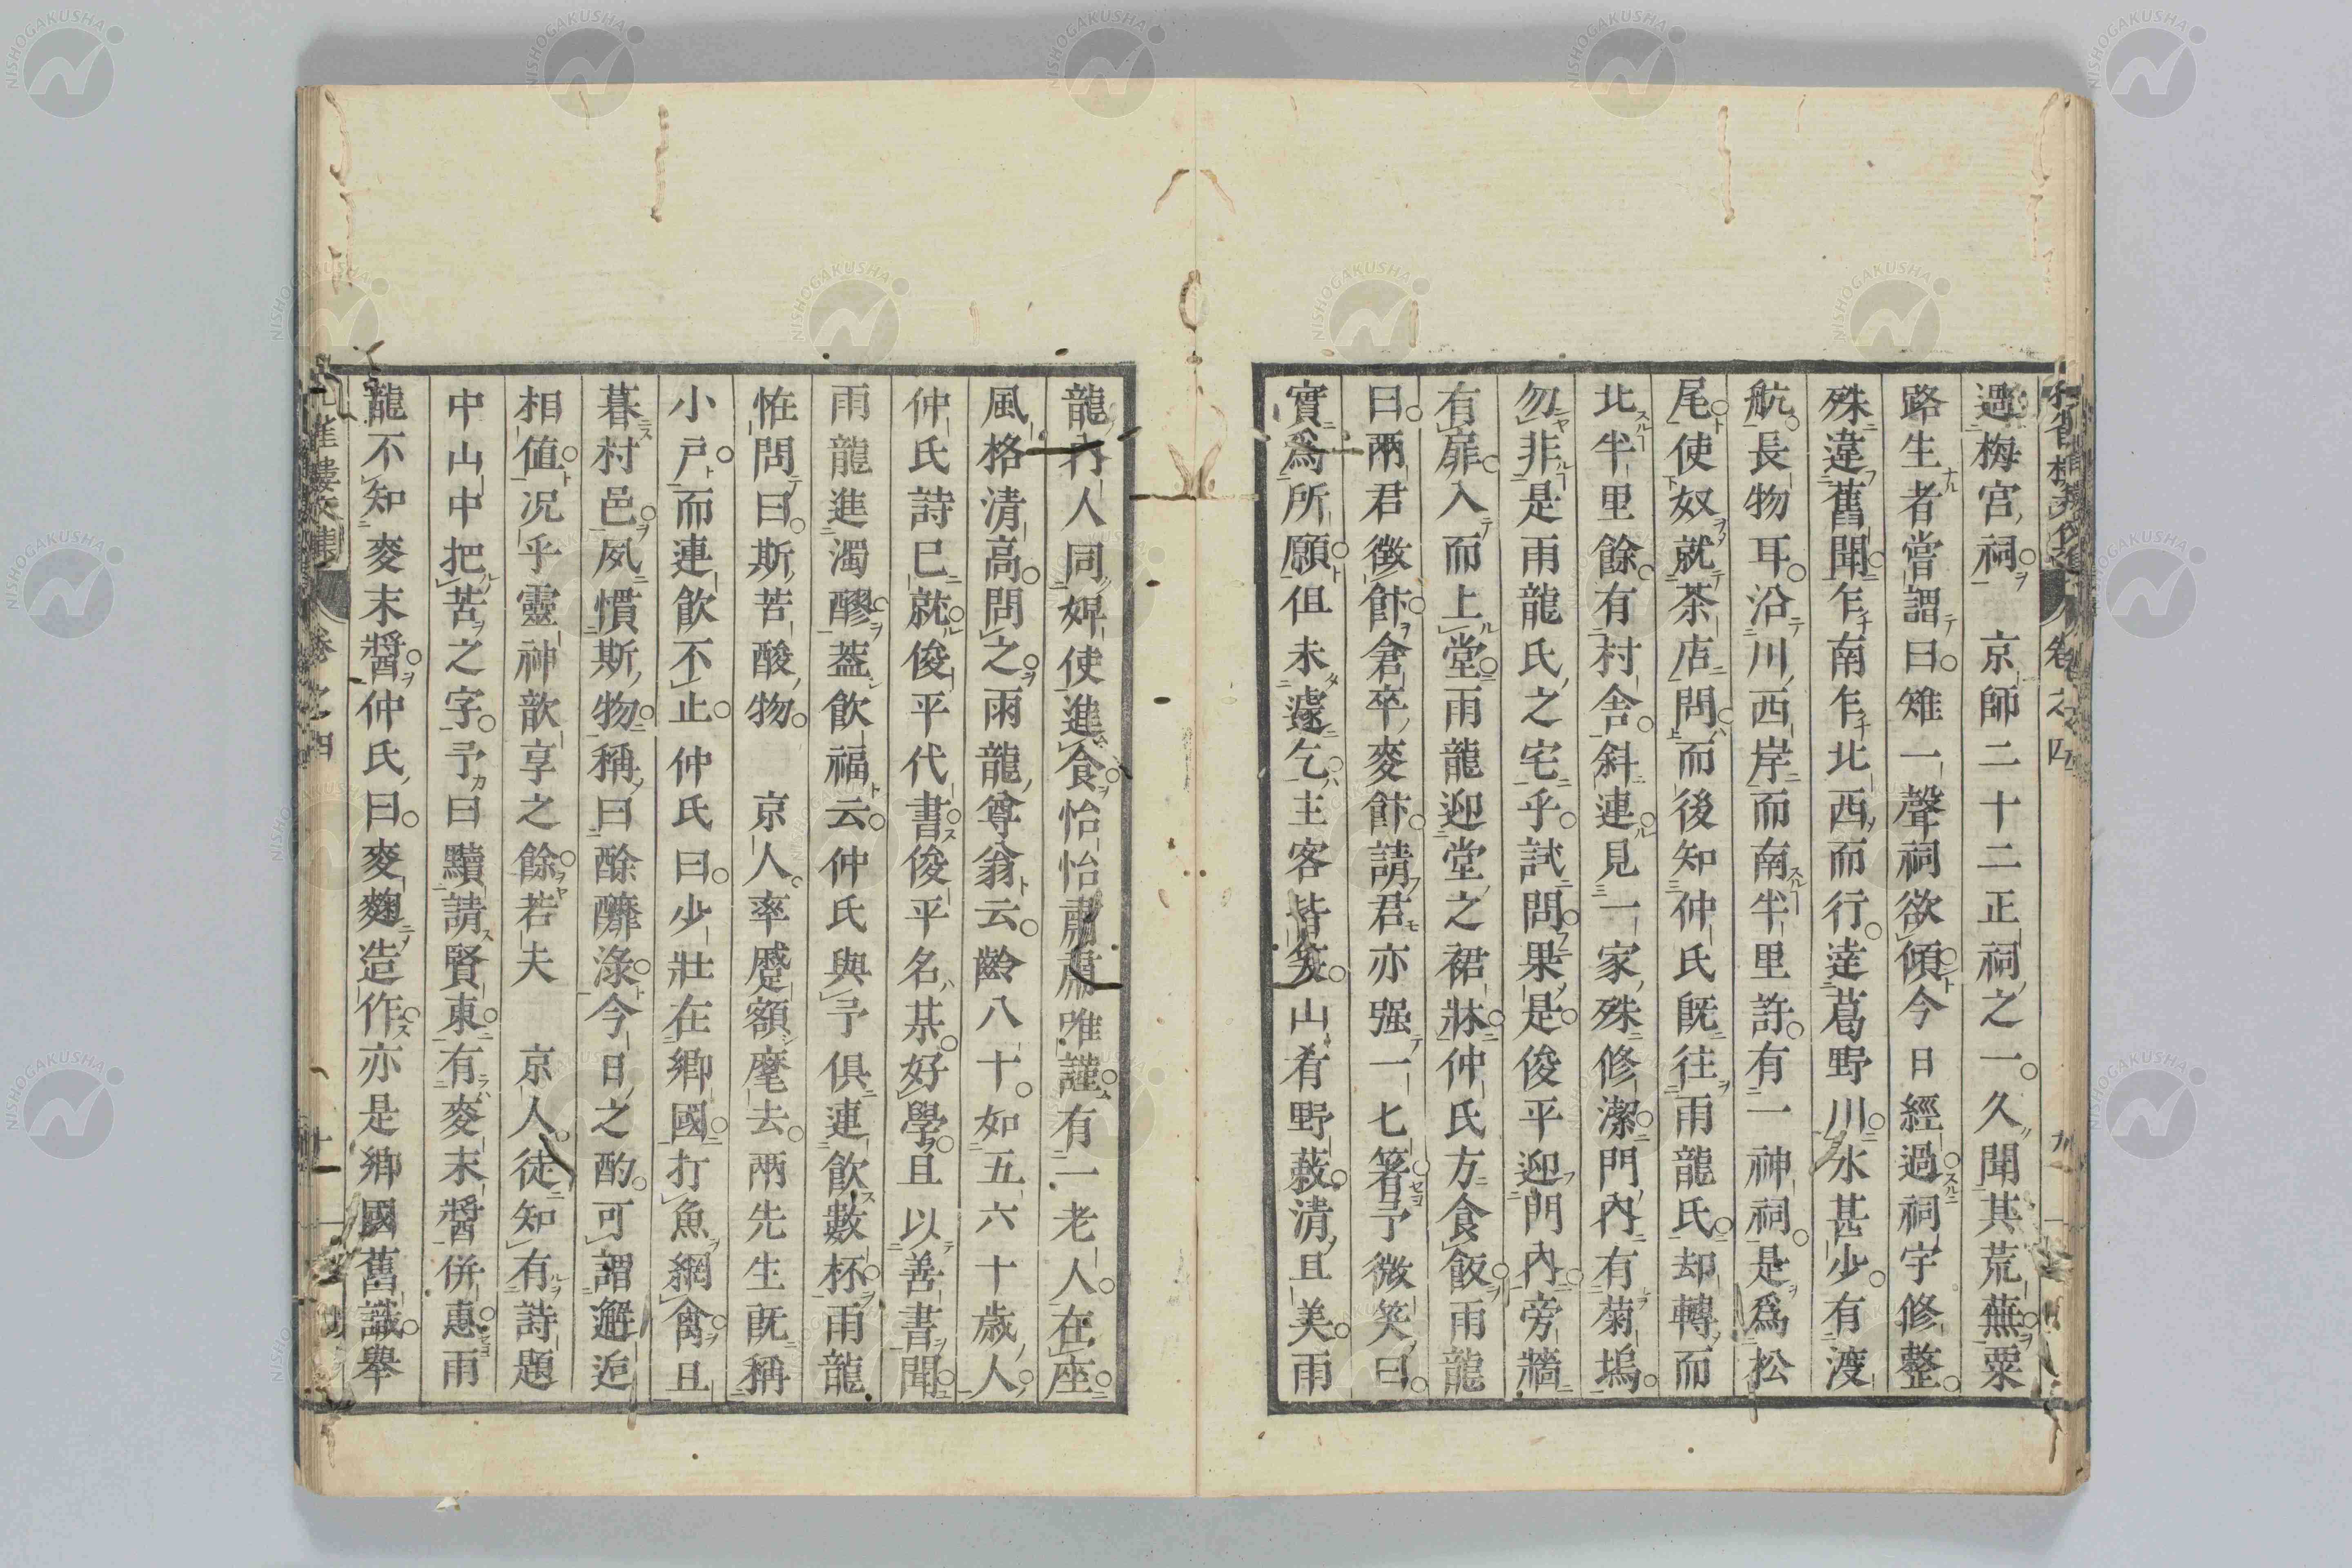 過梅宮祠 京師二十二正祠之一久聞其荒蕪粟
路生者嘗謂曰雉一聲祠欲傾今日經過祠宇修整
殊違舊聞乍南乍北西而行達葛野川水甚少有渡
航長物耳沿川西岸而南半里許有一神祠是爲松
尾使奴就茶店問而後知仲氏旣往雨龍氏却轉而
北半里餘有村舍斜連見一家殊修潔門內有菊塢
勿非是雨龍氏之宅乎試問果是俊平迎門內旁牆
有扉入而上堂雨龍迎堂之裙牀仲氏方食飯雨龍
曰兩君徵餅倉卒麥餅請君亦强一七箸予微笑曰
實爲所願但未遽乞主客皆笑山肴野蔌淸且美雨
龍內人同婢使進食怡怡肅肅唯謹有一老人在座
風格淸高問之雨龍尊翁云齡八十如五六十歲人
仲氏詩已就俊平代書俊平名某好學且以善書聞
雨龍進濁醪蓋飮福云仲氏與予俱連飮數杯雨龍
恠問曰斯苦酸物 京人率蹙額麾去兩先生旣稱
小戶而連飮不止仲氏曰少壯在鄕國打魚網禽且
暮村邑夙慣斯物稱曰酴醾淥今日之酌可謂邂逅
相値况乎靈神歆享之餘若夫 京人徒知有詩題
中山中把苦之字予曰黷請賢東有麥末醬併惠雨
龍不知麥末醬仲氏曰麥麴造作亦是鄕國舊識擧
卷之四 九
卷之四 十